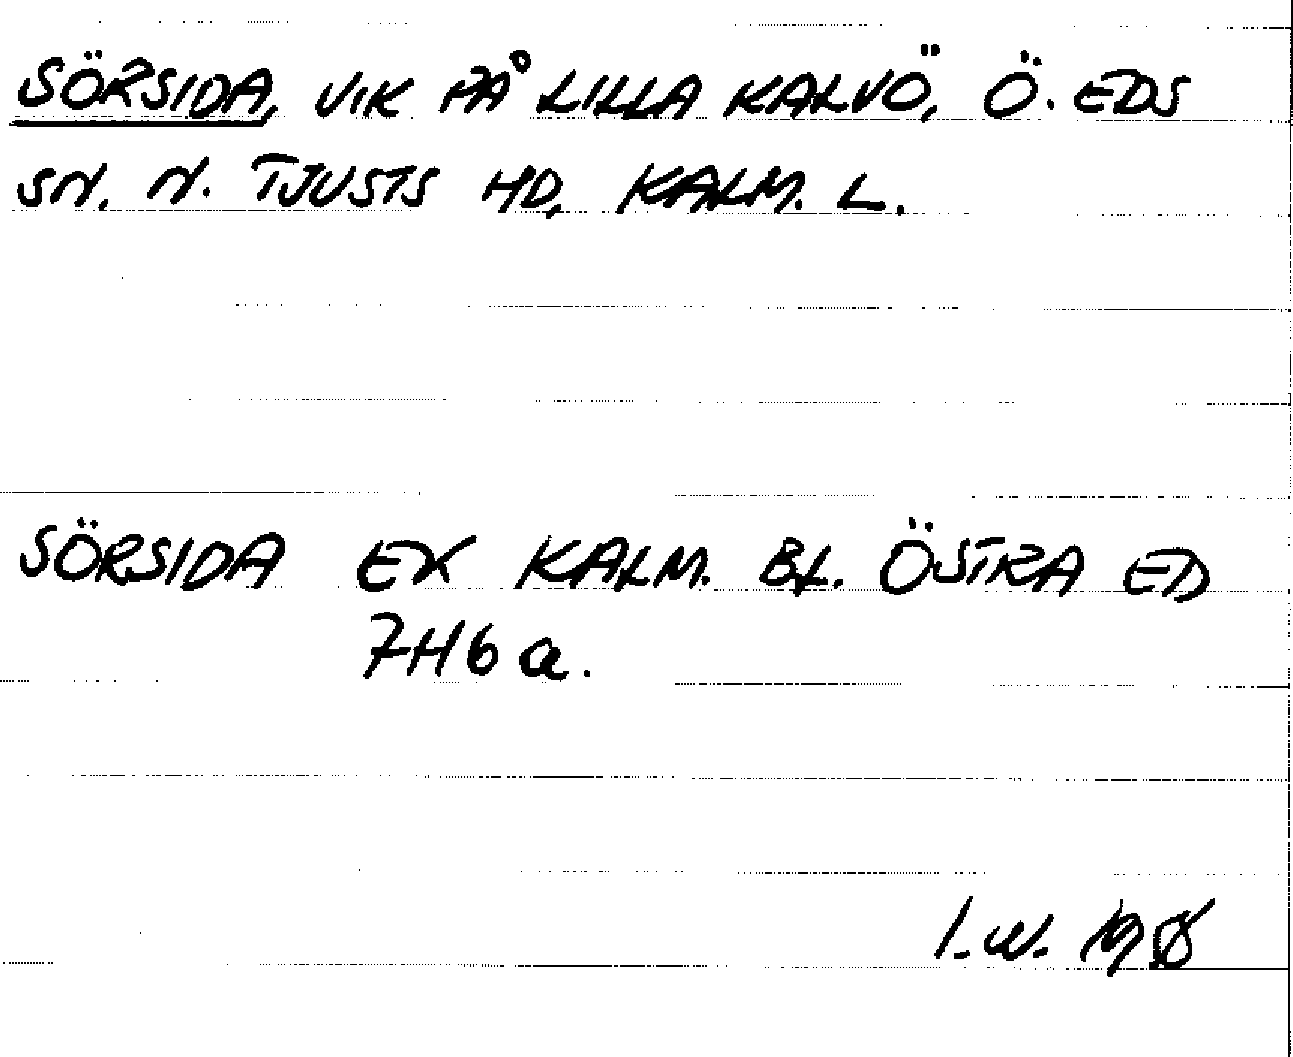 SÖRSIDA, VIK PÅ LILLA KALVÖ, Ö. EDS
SN. N. TJUSTS HD, KALM. L.
SÖRSIDA EK KALM. BL. ÖSTRA ED
7H6a.
I.W.